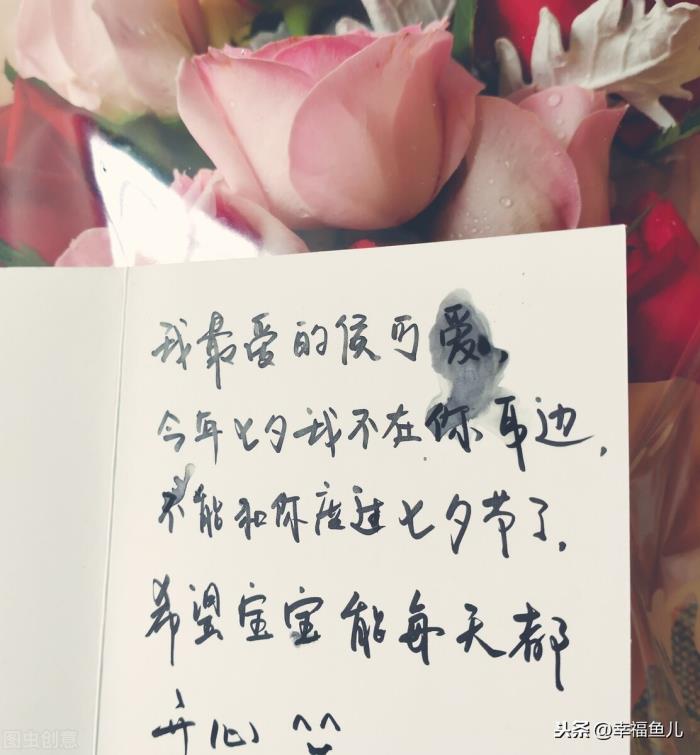 我最爱的侯可爱,
今年七夕我不在你耳边,
不能和你度过七夕节了,
希望宝宝能每天都
开心 ^^
图虫创意
头条@幸福鱼儿